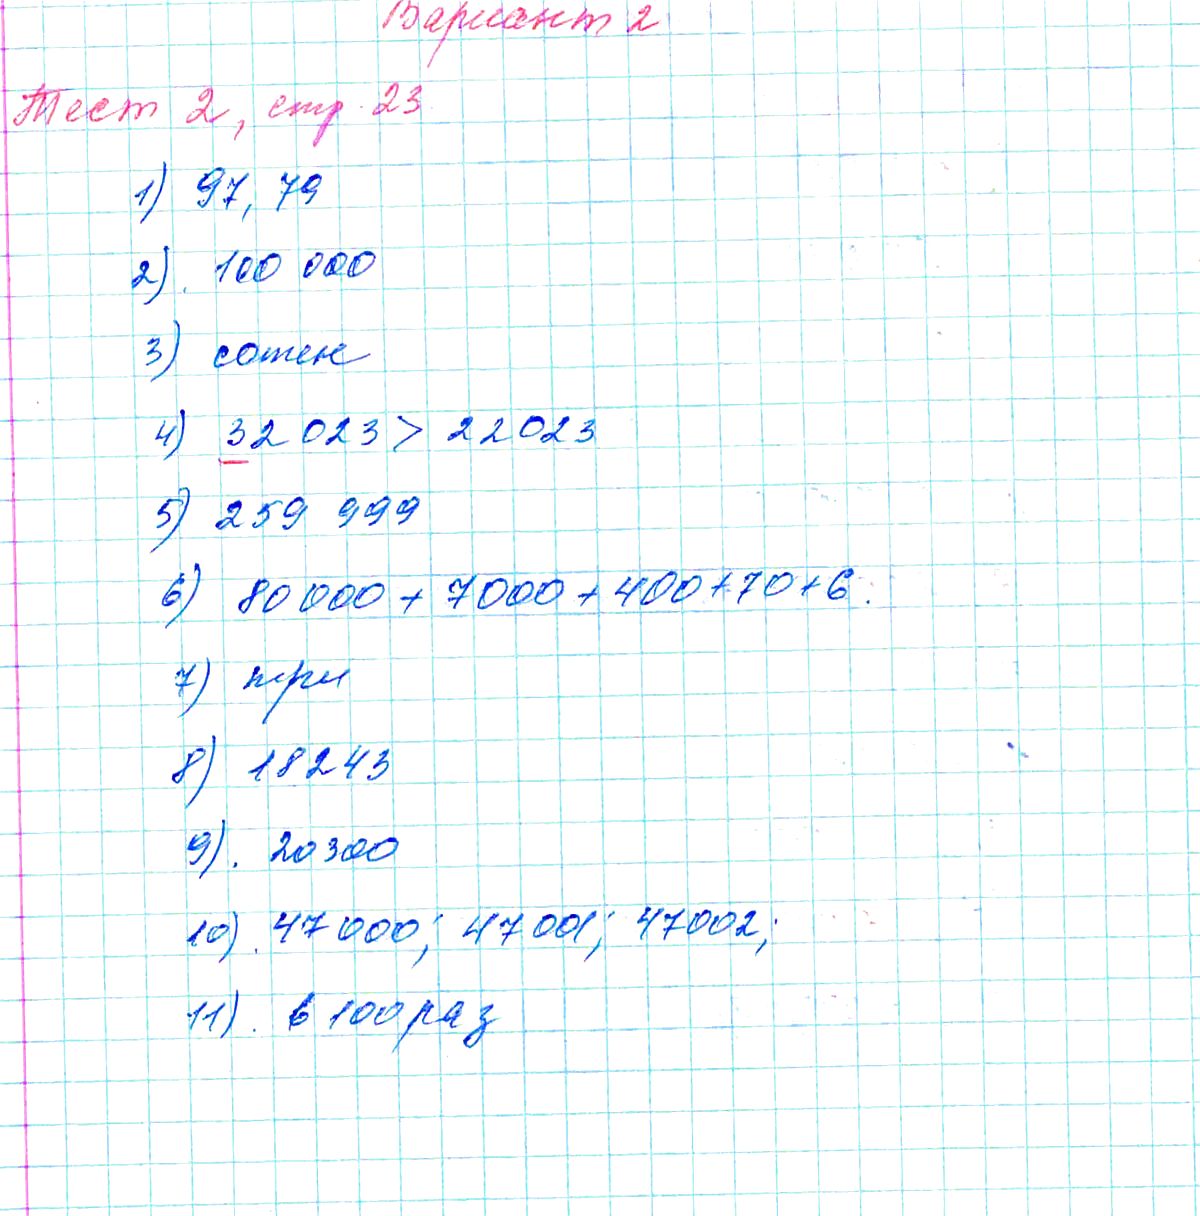 Вариант 2
Тест 2, стр. 23
1) 97, 79
2). 100 000
3) сотен
4) 32 023 > 22023
5) 259 999
6) 80 000 + 7000 + 400 + 70 + 6.
7) три
8) 18243
9). 20300
10). 47 000; 47 001; 47002;
11). в 100 раз